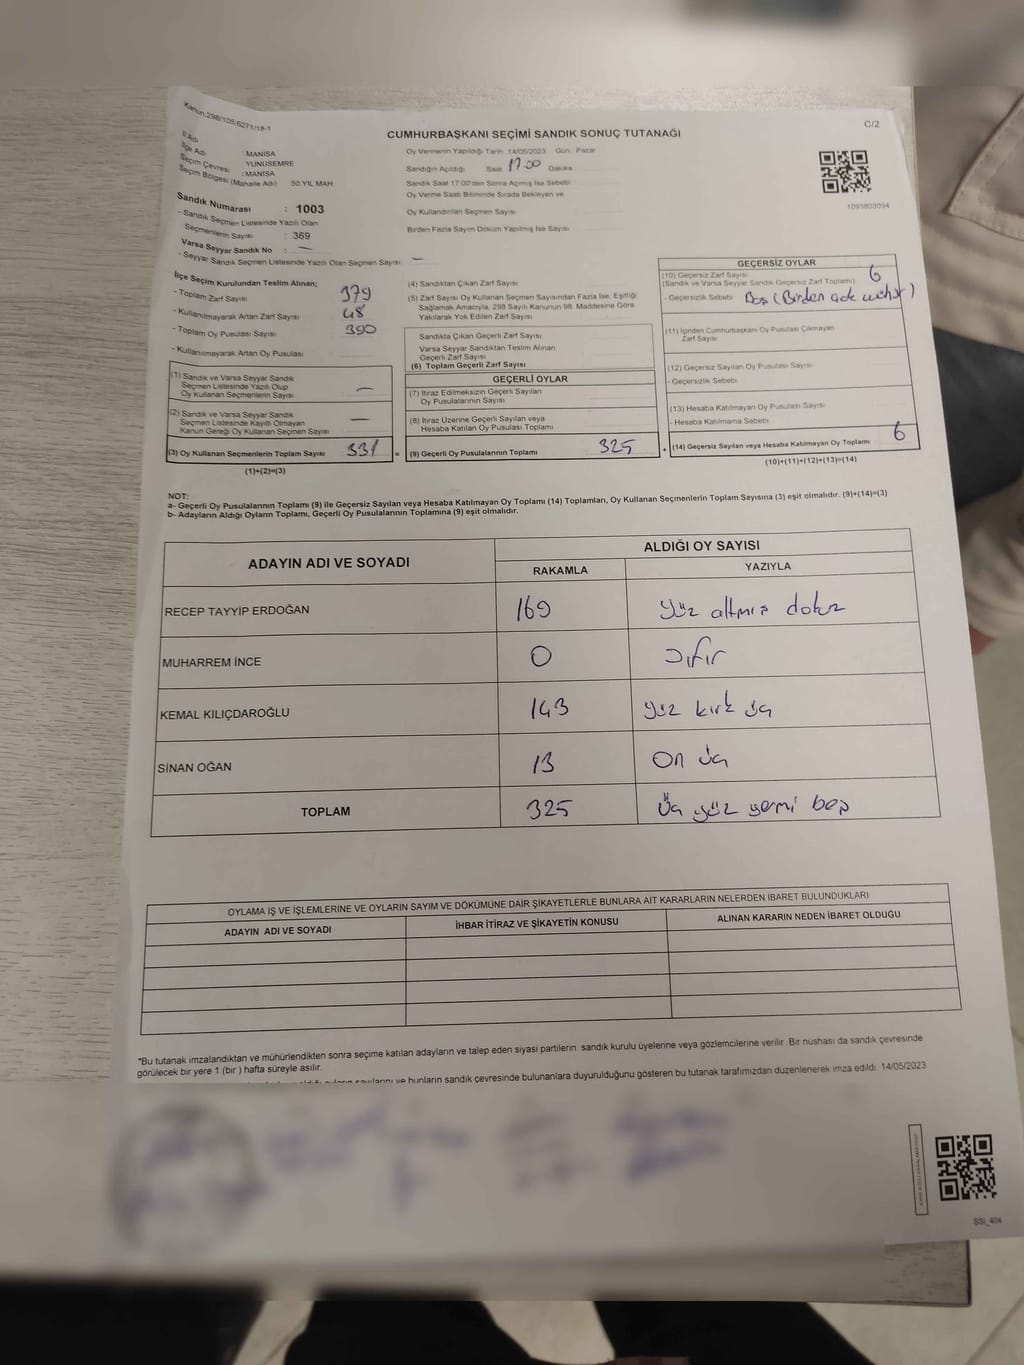 Kanun:298/105;6271/18-1
C/2
CUMHURBAŞKANI SEÇİMİ SANDIK SONUÇ TUTANAĞI
İl Adı : MANİSA
İlçe Adı : YUNUSEMRE
Seçim Çevresi : MANİSA
Seçim Bölgesi (Mahalle Adı) 50.YIL MAH.
Sandık Numarası : 1003
- Sandık Seçmen Listesinde Yazılı Olan
Seçmenlerin Sayısı : 369
Varsa Seyyar Sandık No : —
- Seyyar Sandık Seçmen Listesinde Yazılı Olan Seçmen Sayısı : —
Oy Vermenin Yapıldığı Tarih : 14/05/2023 Gün : Pazar
Sandığın Açıldığı Saat 17:00 Dakika
Sandık Saat 17:00'den Sonra Açılmış İse Sebebi
Oy Verme Saati Bitiminde Sırada Bekleyen ve
Oy Kullandırılan Seçmen Sayısı
Birden Fazla Sayım Döküm Yapılmış İse Sayısı
1091803094
İlçe Seçim Kurulundan Teslim Alınan;
- Toplam Zarf Sayısı 379
- Kullanılmayarak Artan Zarf Sayısı 48
- Toplam Oy Pusulası Sayısı 390
- Kullanılmayarak Artan Oy Pusulası
(1) Sandık ve Varsa Seyyar Sandık
Seçmen Listesinde Yazılı Olup
Oy Kullanan Seçmenlerin Sayısı —
(2) Sandık ve Varsa Seyyar Sandık
Seçmen Listesinde Kayıtlı Olmayan
Kanun Gereği Oy Kullanan Seçmen Sayısı —
(3) Oy Kullanan Seçmenlerin Toplam Sayısı 331
(1)+(2)=(3)
(4) Sandıktan Çıkan Zarf Sayısı
(5) Zarf Sayısı Oy Kullanan Seçmen Sayısından Fazla İse, Eşitliği
Sağlamak Amacıyla, 298 Sayılı Kanunun 98. Maddesine Göre
Yakılarak Yok Edilen Zarf Sayısı
Sandıkta Çıkan Geçerli Zarf Sayısı
Varsa Seyyar Sandıktan Teslim Alınan
Geçerli Zarf Sayısı
(6) Toplam Geçerli Zarf Sayısı
GEÇERLİ OYLAR
(7) İtiraz Edilmeksizin Geçerli Sayılan
Oy Pusulalarının Sayısı
(8) İtiraz Üzerine Geçerli Sayılan veya
Hesaba Katılan Oy Pusulası Toplamı
= (9) Geçerli Oy Pusulalarının Toplamı 325
GEÇERSİZ OYLAR
(10) Geçersiz Zarf Sayısı 6
(Sandık ve Varsa Seyyar Sandık Geçersiz Zarf Toplamı)
- Geçersizlik Sebebi Boş (Birden çok mühür)
(11) İçinden Cumhurbaşkanı Oy Pusulası Çıkmayan
Zarf Sayısı
(12) Geçersiz Sayılan Oy Pusulası Sayısı
- Geçersizlik Sebebi
(13) Hesaba Katılmayan Oy Pusulası Sayısı
- Hesaba Katılmama Sebebi
+ (14) Geçersiz Sayılan veya Hesaba Katılmayan Oy Toplamı 6
(10)+(11)+(12)+(13)=(14)
NOT:
a- Geçerli Oy Pusulalarının Toplamı (9) ile Geçersiz Sayılan veya Hesaba Katılmayan Oy Toplamı (14) Toplamları, Oy Kullanan Seçmenlerin Toplam Sayısına (3) eşit olmalıdır. (9)+(14)=(3)
b- Adayların Aldığı Oyların Toplamı, Geçerli Oy Pusulalarının Toplamına (9) eşit olmalıdır.
ADAYIN ADI VE SOYADI ALDIĞI OY SAYISI
RAKAMLA YAZIYLA
RECEP TAYYİP ERDOĞAN 169 yüz altmış dokuz
MUHARREM İNCE 0 sıfır
KEMAL KILIÇDAROĞLU 143 yüz kırk üç
SİNAN OĞAN 13 On üç
TOPLAM 325 Üç yüz yirmi beş
OYLAMA İŞ VE İŞLEMLERİNE VE OYLARIN SAYIM VE DÖKÜMÜNE DAİR ŞİKAYETLERLE BUNLARA AİT KARARLARIN NELERDEN İBARET BULUNDUKLARI
ADAYIN ADI VE SOYADI İHBAR İTİRAZ VE ŞİKAYETİN KONUSU ALINAN KARARIN NEDEN İBARET OLDUĞU
*Bu tutanak imzalandıktan ve mühürlendikten sonra seçime katılan adayların ve talep eden siyasi partilerin sandık kurulu üyelerine veya gözlemcilerine verilir. Bir nüshası da sandık çevresinde
görülecek bir yere 1 (bir ) hafta süreyle asılır.
oyların sayılarını ve bunların sandık çevresinde bulunanlara duyurulduğunu gösteren bu tutanak tarafımızdan düzenlenerek imza edildi. 14/05/2023
SSI_404